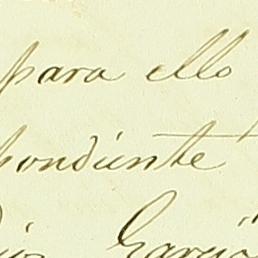 para ello
pondiente
García